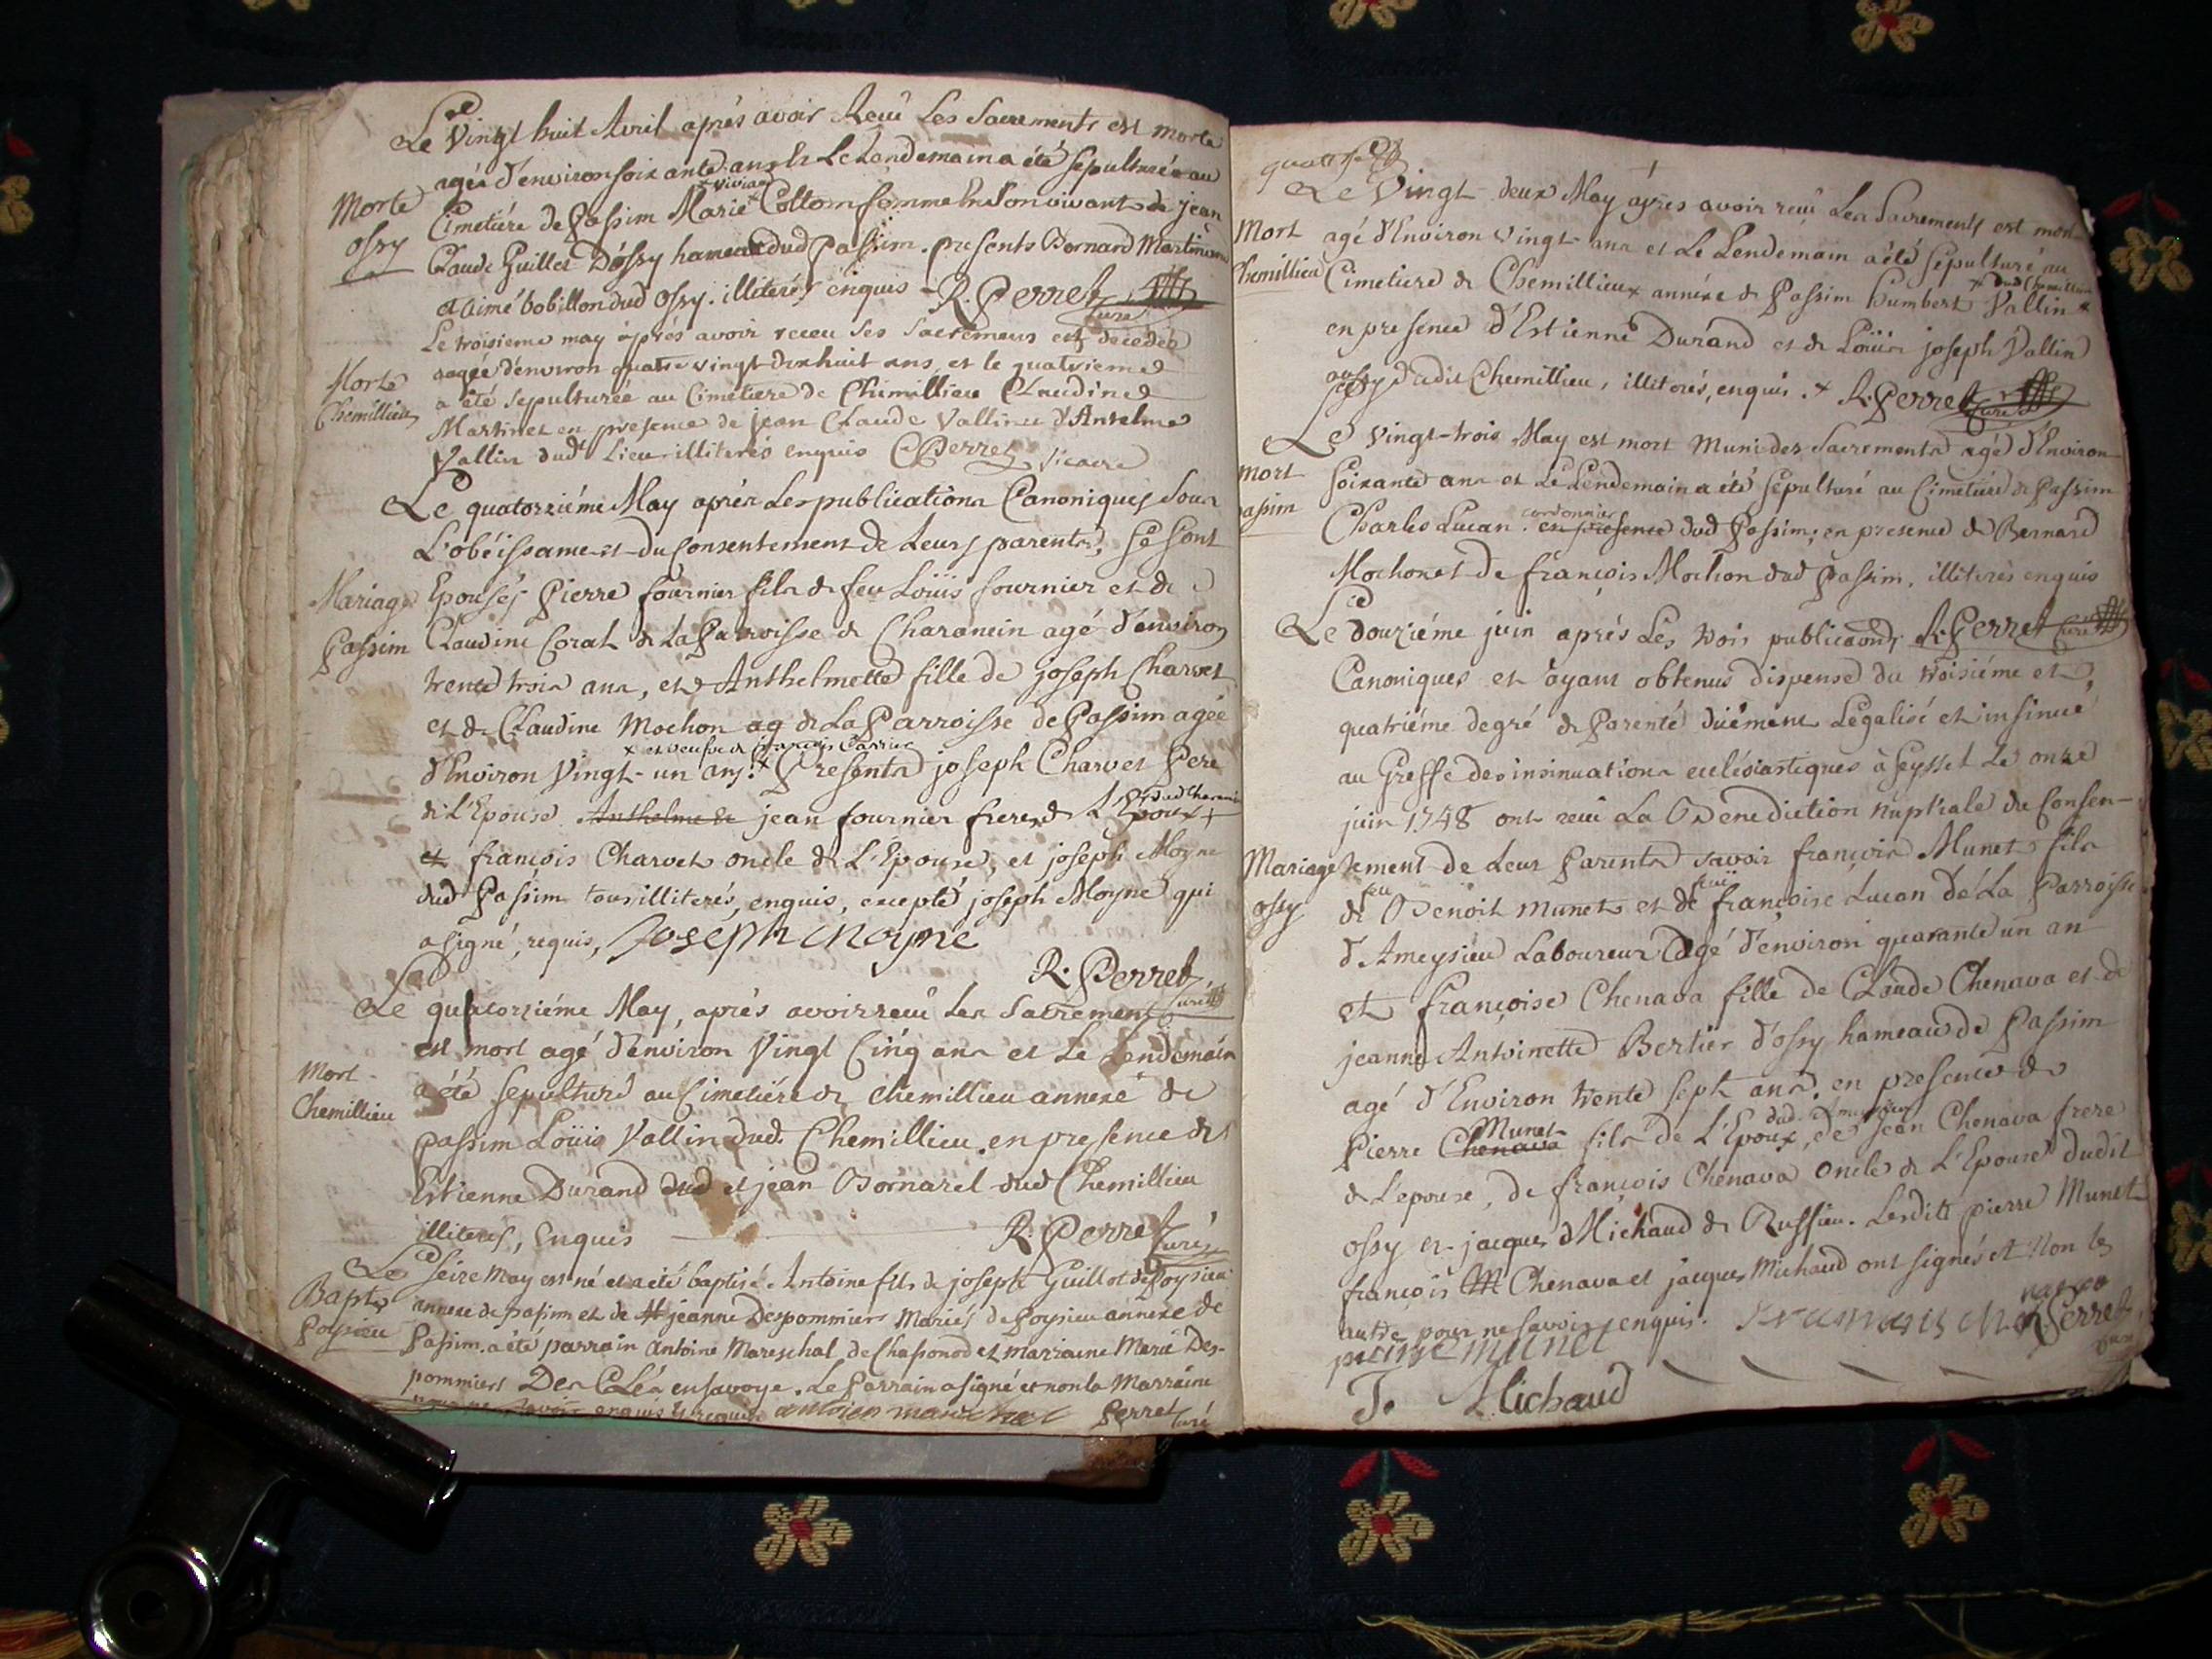 Le vingt huit Avril aprés avoir Receu Les Sacrements est morte
agéé d'environ soixante ans et Le Lendemain a été sepulturéé au
Morte
ossy
x vivian
Cimetiére de passim Marie x Collom femme En Son vivant de jean
Claude Guillet D'ossy hameau dud passim. presents Bernard Martinand
et aimé bobillon dud ossy. illiterés enquis - R. Perret Curé
Le troisieme may aprés avoir receu ses sacremens est decedéé
Morte
Chemillieu
aagéé d'environ quatre vingt dix huit ans, et le quatrieme
a été sepulturéé au Cimetiere de Chimillieu Claudine
Martinet en presence de jean Claude Vallin et d'Antelme
Vallin dudt Lieu illiterés enquis C Perret vicaire
Le quatorziéme May aprés Les publications Canoniques Sous
L'obéissance et du Consentement de Leurs parents, se sont
Mariage
passim
Epousés pierre fournier fils de feu Loüis fournier et de
Claudine Corat de La parroisse de Charancin agé d'environ
trente trois ans, et Anthelmette fille de joseph Charvet
et de Claudine Mochon ag de La parroisse de passim agéé
x et veufve de françois Carrier
d'Environ vingt-un ans. x presents joseph Charvet pere
de L'Epouse. Anthelme et jean fournier frere de L'Epoux +
+ dud Charancin
et françois Charvet oncle de L'Epouse, et joseph Moyne
dud passim tous illiterés, enquis, excepté joseph Moyne qui
a signé, requis, joseph moyne
R. Perret Curé
Le quatorziéme May, aprés avoir receu Les Sacrements
est mort agé d'environ vingt Cinq ans et Le Lendemain
Mort
Chemillieu
a été sepulturé au Cimetiére de Chemillieu annexe de
passim Loüis Vallin dud. Chemillieu. en presence de
Estienne Durand dud et jean Bornarel dud Chemillieu
illiterés, Enquis R. Perret Curé
Le seize May est né et a été baptisé Antoine fils de joseph Guillot de poysieu
Bapt
poysieu
annexe de passim et de M jeanne Despommiers Mariés de poysieu annexe de
passim. a été parrain Antoine Mareschal de Chassonod et marraine Marie Des-
pommiers Des Clés en savoye. Le parrain a signé et non la Marraine
pour ne savoir enquis et requis antoien marechal Perret Curé
Le Vingt-deux May aprés avoir receu Les Sacrements est mort
Mort
Chemillieu
agé d'Environ vingt ans et Le Lendemain a été sepulturé au
Cimetiere de Chemillieux annéxe de passim humbert x Vallin x
x dud Chemillieu
en presence d'Estienne Durand et de Loüis joseph Vallin
aussy dudit Chemillieu, illiterés, enquis. x R. Perret Curé
Le vingt-trois May est mort Muni des Sacrements agé d'Environ
mort
passim
Soixante ans et Le Lendemain a été sepulturé au Cimetiére de passim
cordonnier
Charles Lucan. en presence dud passim; en presence de Bernard
Mochon et de françois Mochon dud passim, illiterés enquis
R. Perret Curé
Le douziéme juin aprés Les trois publicaons
Canoniques et ayant obtenus dispense du troisiéme et
quatriéme degré de parenté düement Légalisé et insinué
au Greffe des insinuations eclésiastiques à seyssel Le onze
juin 1748 ont receu La Benediction nuptiale du Consen-
Mariage
ossy
tement de Leur parents savoir françois Munet fils
de feu Benoit Munet et de feuë françoise Lucan de La parroisse
d'Ameysieu Laboureur agé d'environ quarante un an
et françoise Chenava fille de Claude Chenava et de
jeanne Antoinette Bertier d'ossy hameau de passim
agé d'Environ trente sept ans. en presence de
Munet
dud. Ameysieu
pierre Chenava fils de L'Epoux, de jean Chenava frere
de L'epouse, de françois Chenava oncle de L'Epouse dudit
ossy et jacques Michaud de Ruffieu. Lesdits pierre Munet
françois M Chenava et jacques Michaud ont signés et Non les
autre pour ne savoir, enquis. R. Perret Curé
pierre munet
J. Michaud